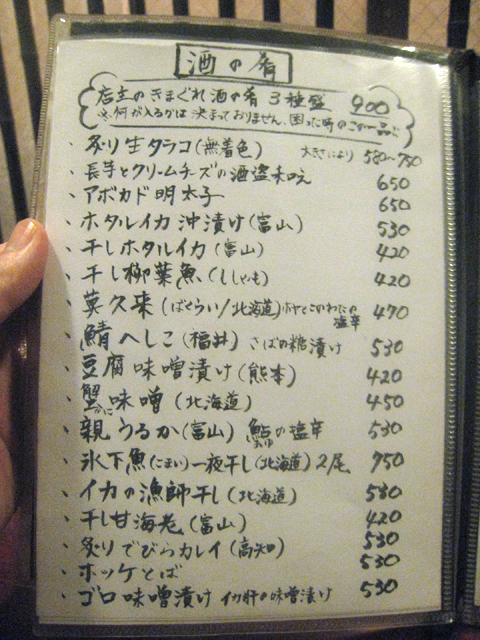 酒の肴
店主のきまぐれ酒の肴 3種盛 900
※何が入るかは決まっておりません、困った時のこの一品に
・炙り生タラコ(無着色) 大きさにより 580〜750
・長芋とクリームチーズの酒盗和え 650
・アボカド明太子 650
・ホタルイカ沖漬け(富山) 530
・干しホタルイカ(富山) 420
・干し柳葉魚(ししゃも) 420
・莫久来(ばくらい/北海道)ホヤとこのわたの塩辛 470
・鯖へしこ(福井) さばの糠漬け 530
・豆腐味噌漬け(熊本) 420
・蟹味噌(北海道) 450
かに
・親うるか(富山) 鮎の塩辛 530
あゆ
・氷下魚(こまい)一夜干し(北海道)2尾 750
・イカの漁師干し(北海道) 530
・干し甘海老(富山) 420
・炙りでびらカレイ(高知) 530
・ホッケとば 530
・ゴロ味噌漬け イカ肝の味噌漬け 530